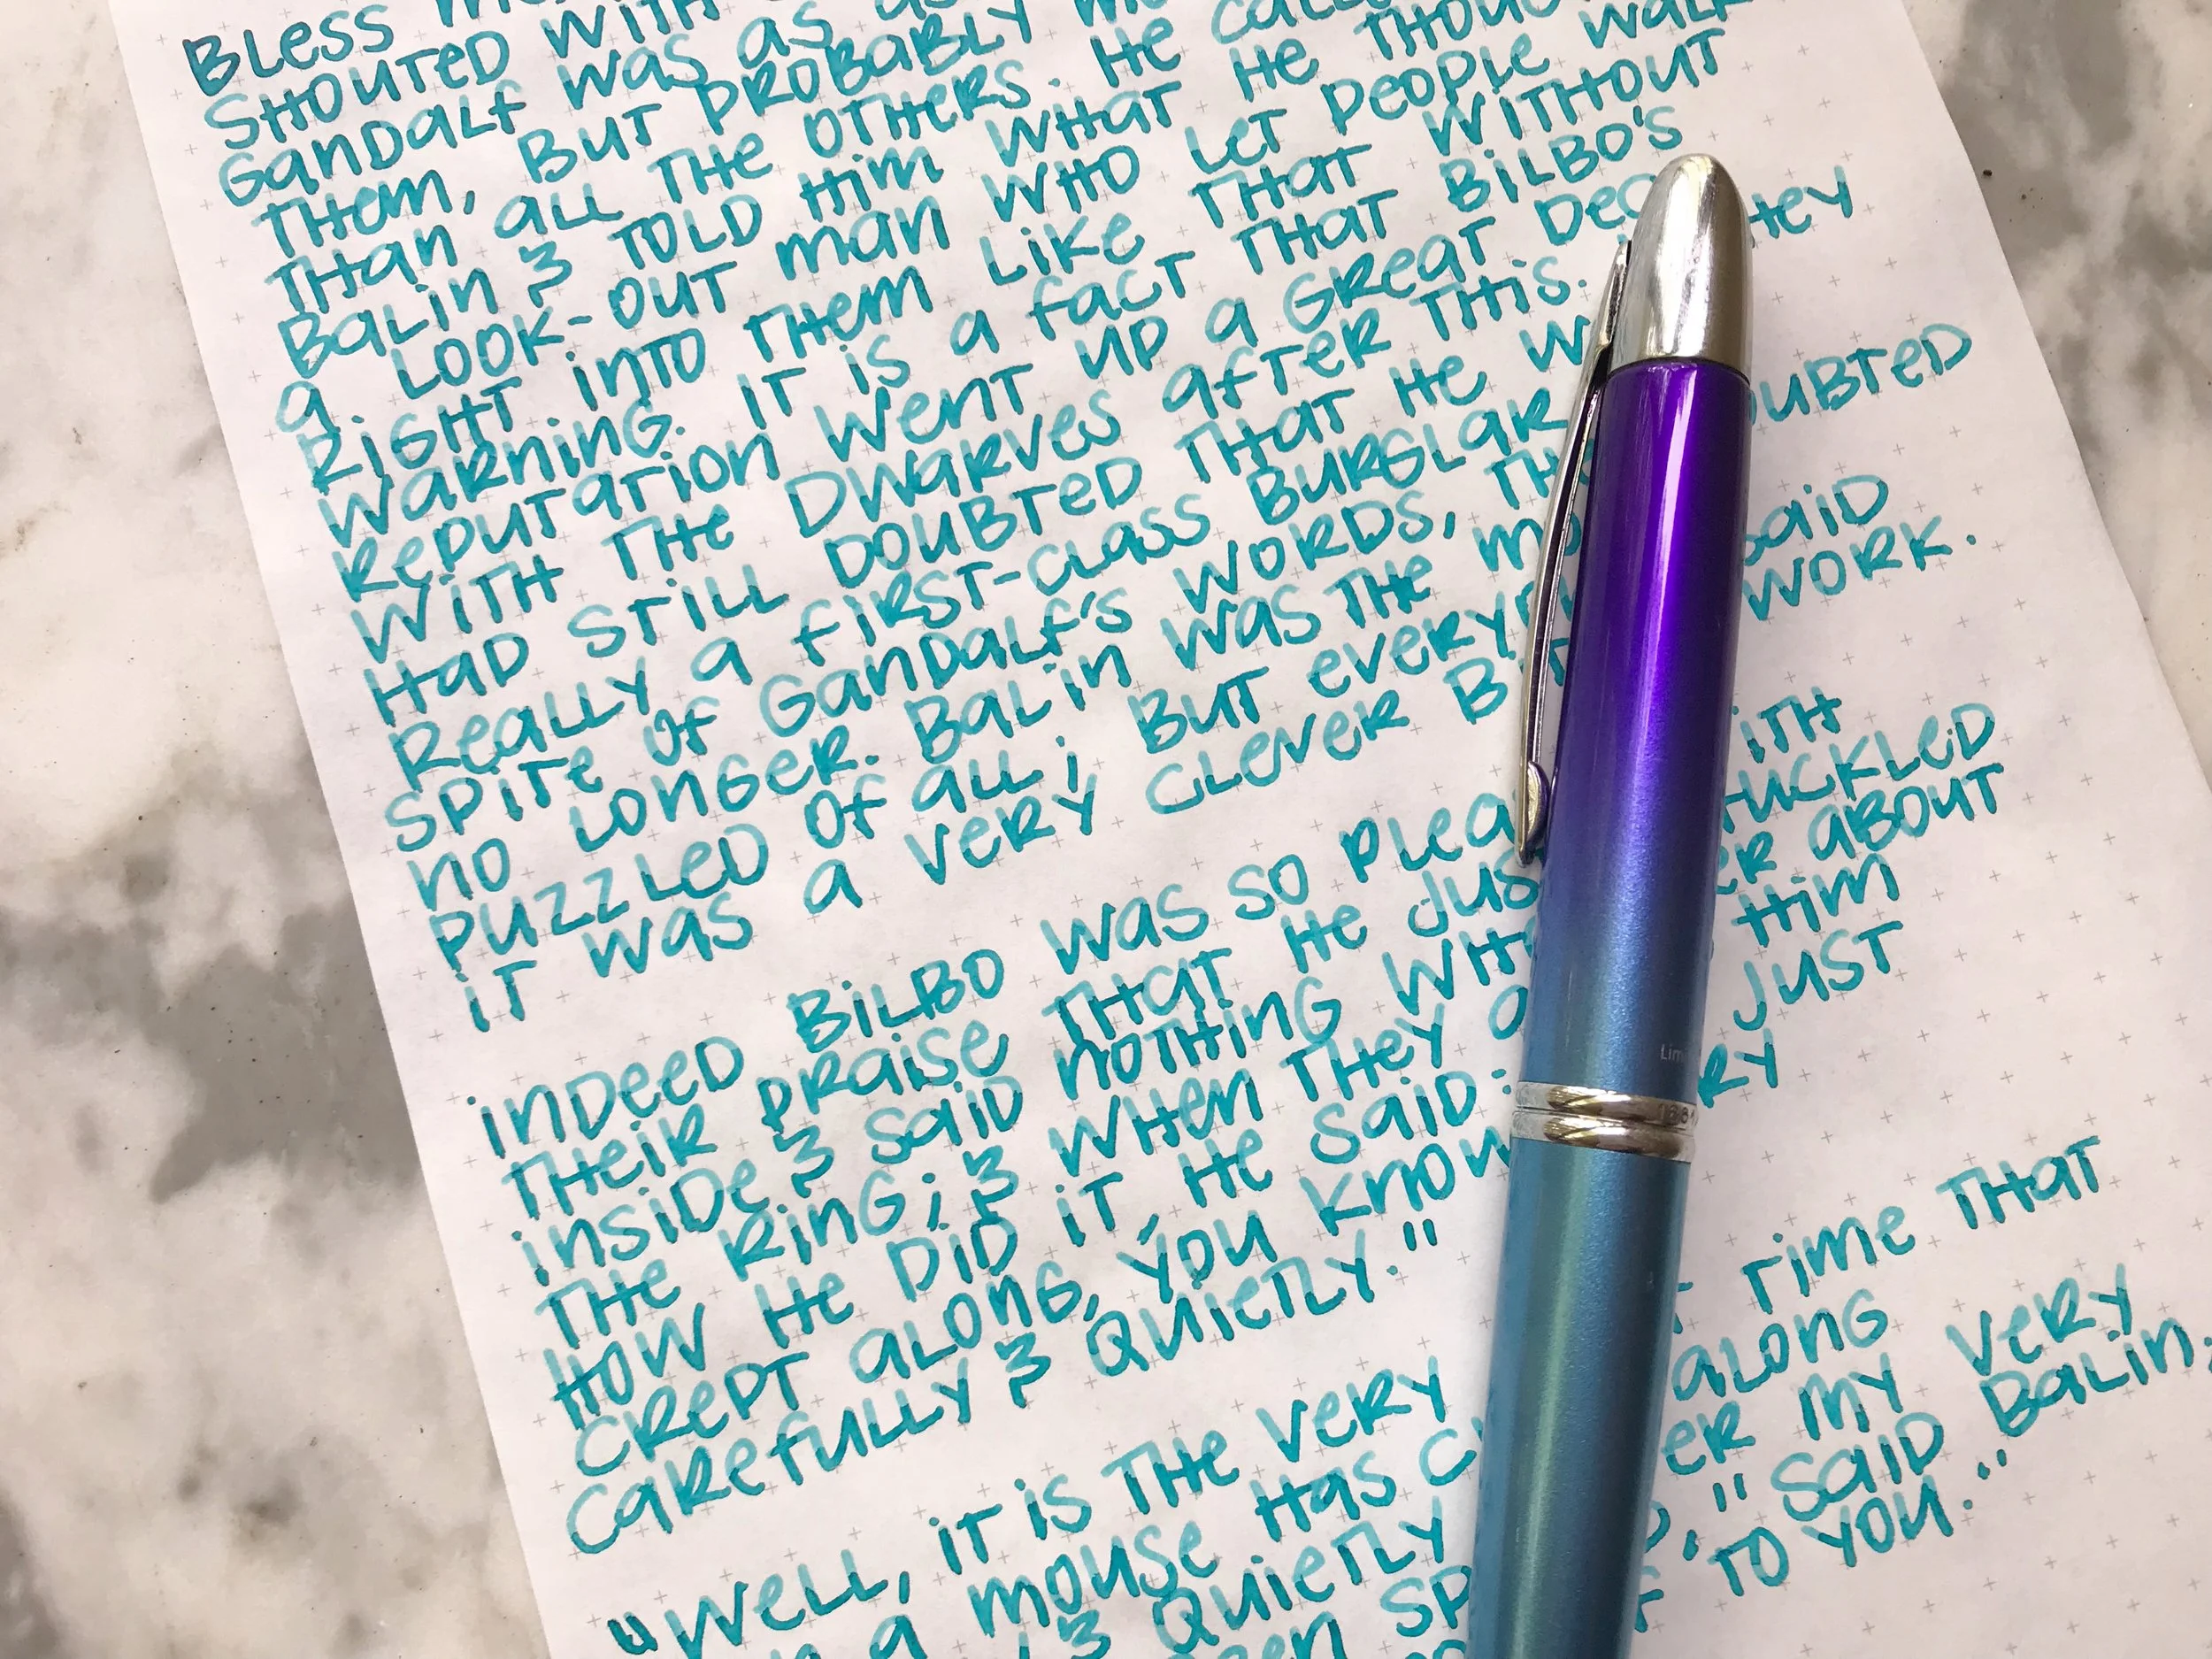 BLESS
SHOUTED WITH
GANDALF WAS AS
THEM, BUT PROBABLY
THAN ALL THE OTHERS. HE
BALIN & TOLD HIM WHAT HE
A. LOOK-OUT MAN WHO LET PEOPLE WALK
RIGHT INTO THEM LIKE THAT WITHOUT
WARNING. IT IS A FACT THAT BILBO'S
REPUTATION WENT UP A GREAT
WITH THE DWARVES AFTER THIS. THEY
HAD STILL DOUBTED THAT HE
REALLY A FIRST-CLASS BURGLAR
SPITE OF GANDALF'S WORDS, DOUBTED
NO LONGER. BALIN WAS THE
PUZZLED OF ALL; BUT SAID
IT WAS A VERY CLEVER WORK.
INDEED BILBO WAS SO WITH
THEIR PRAISE THAT HE CHUCKLED
INSIDE & SAID NOTHING ABOUT
THE RING; & WHEN THEY HIM
HOW HE DID IT, HE SAID: JUST
CREPT ALONG, YOU KNOW
CAREFULLY & QUIETLY."
"WELL, IT IS THE VERY TIME THAT
A MOUSE HAS ALONG
& QUIETLY MY VERY
SAID BALIN,
TO YOU."